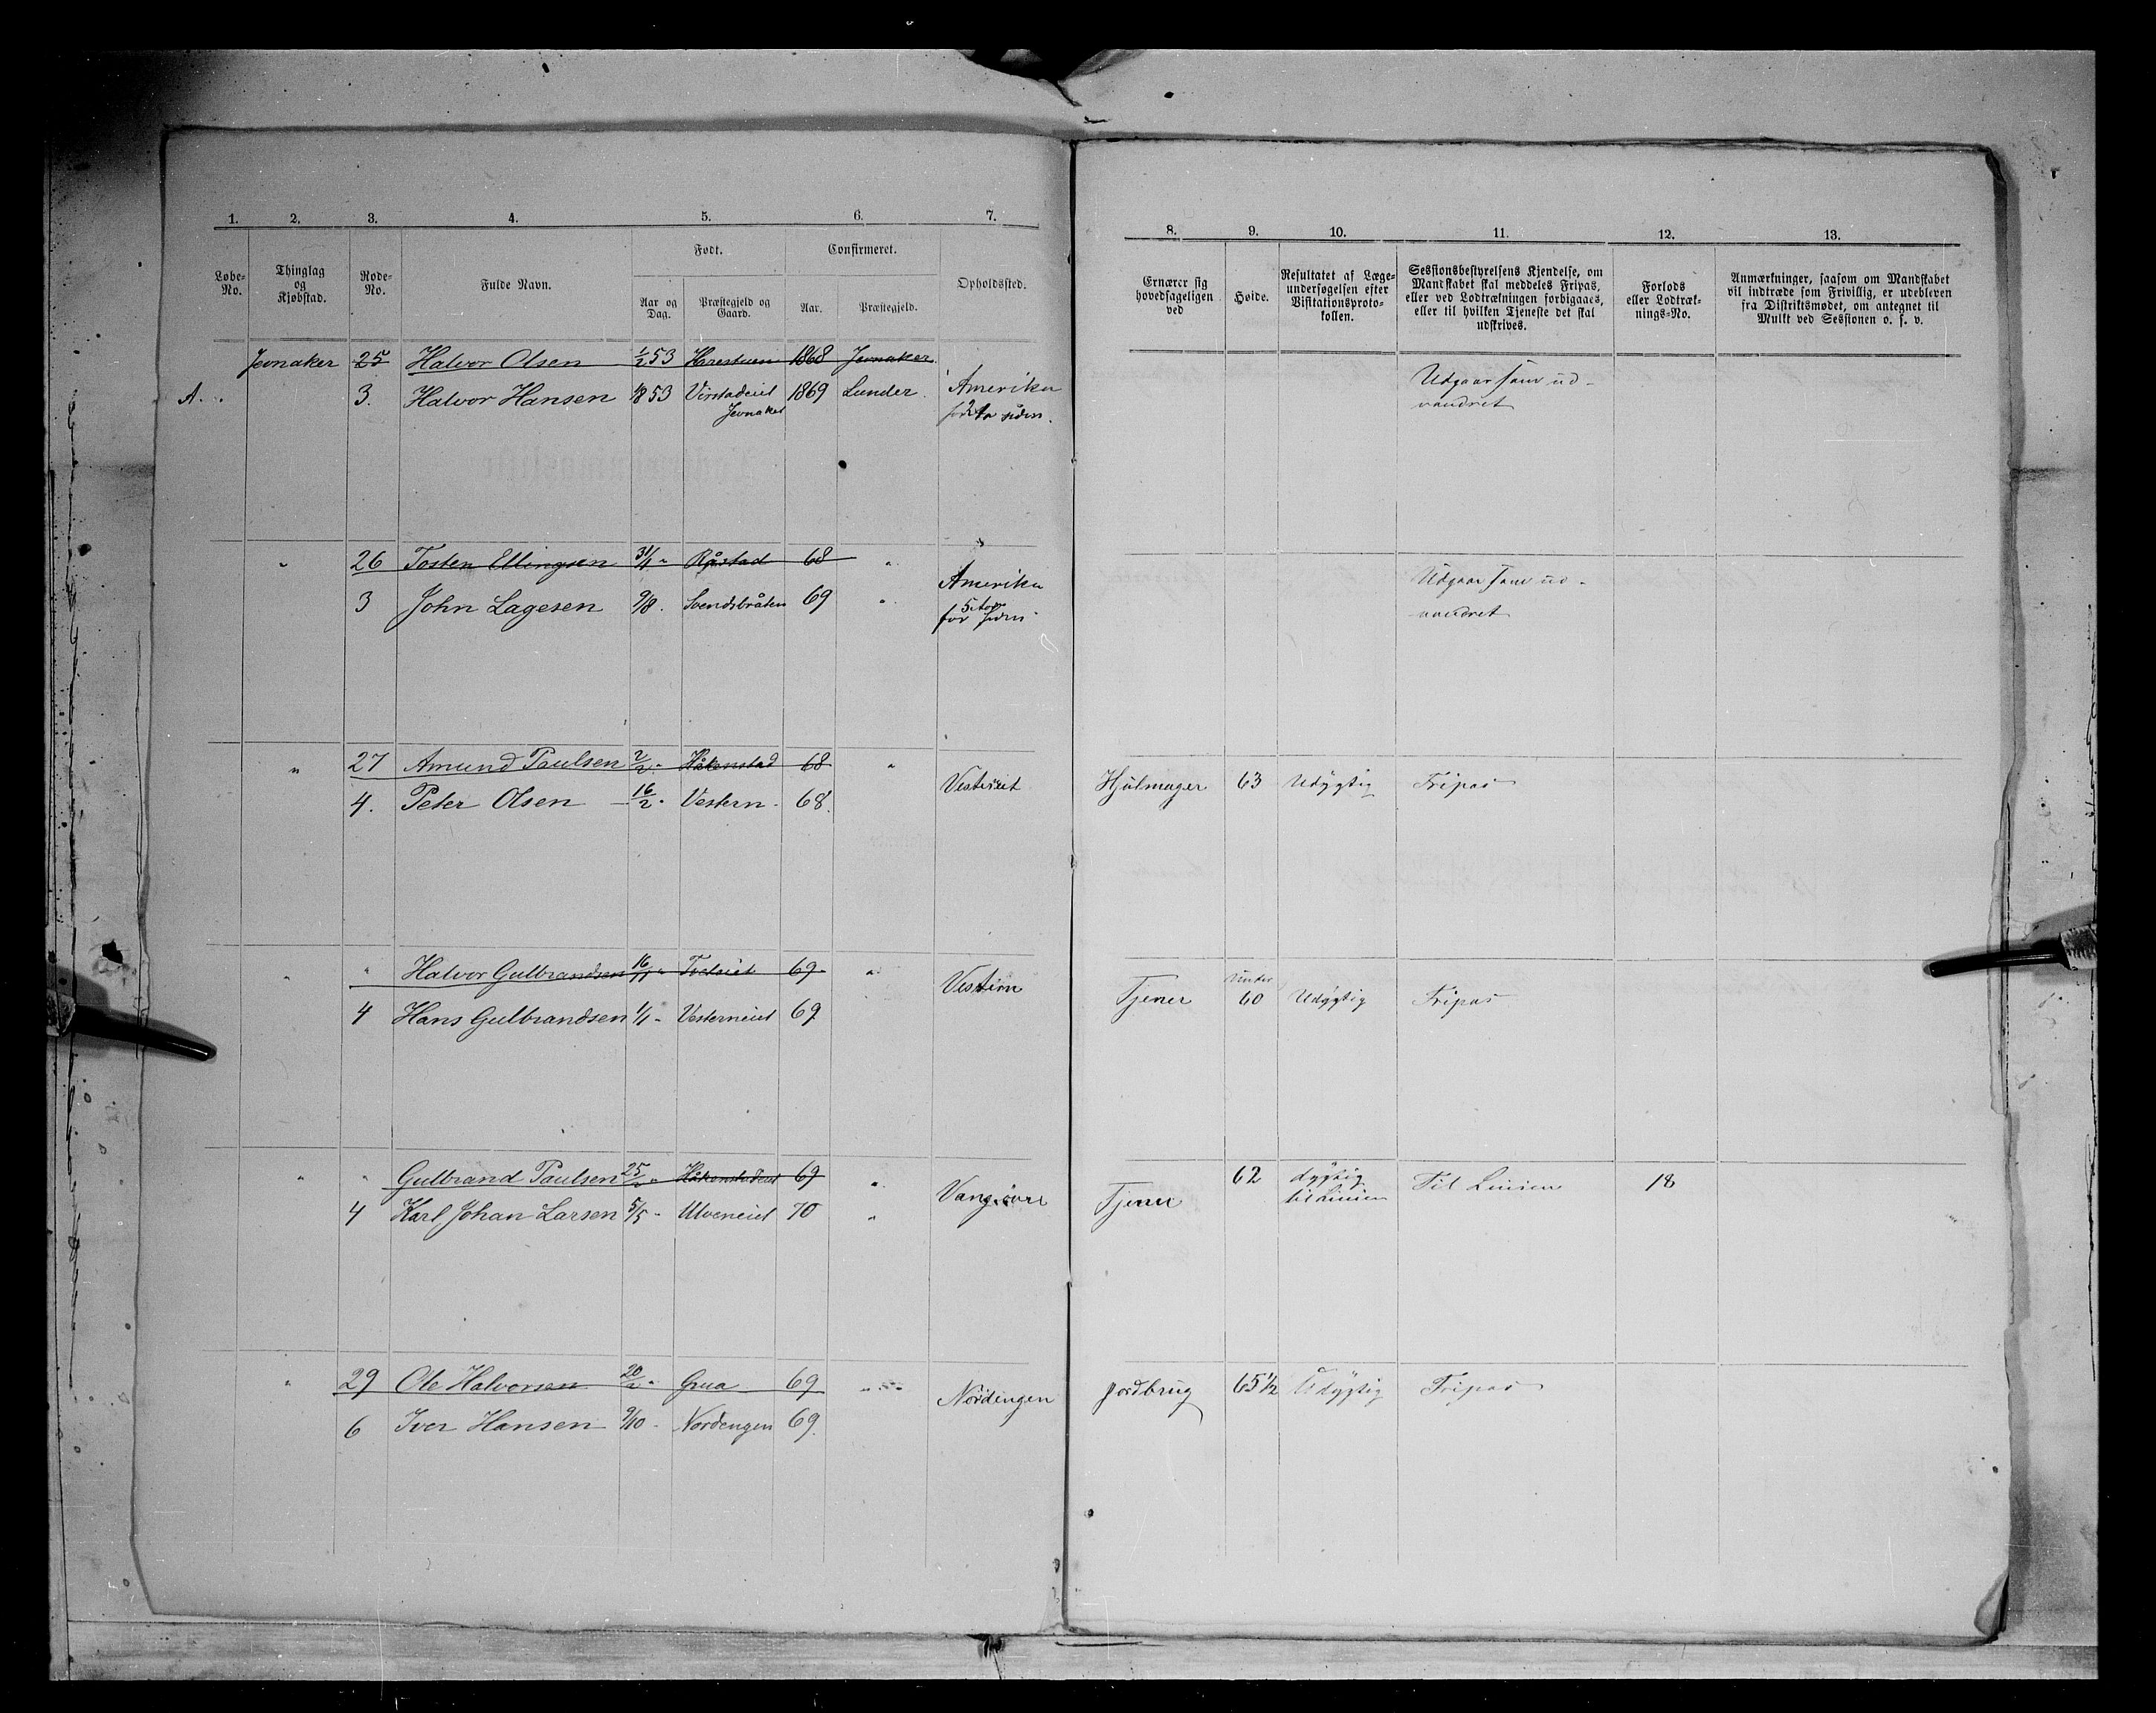 1. 2. 3. 4. 5. 6. 7.
Løbe-No. Thinglag og Kjøbstad. Rode-No. Fulde Navn. Født. Confirmeret. Opholdssted.
Aar og Dag. Præstegjeld og Gaard. Aar. Præstegjeld.
8. 9. 10. 11. 12. 13.
Ernærer sig hovedsageligen ved
Høide.
Resultatet af Læge-undersøgelsen efter Visitationsproto-kollen.
Sessionsbestyrelsens Kjendelse, om Mandskabet skal meddeles Fripas, eller ved Lodtrækningen forbigaaes, eller til hvilken Tjeneste det skal udskrives.
Forlods eller Lodtræk-nings-No.
Anmærkninger, saasom om Mandskabet vil indtræde som Frivillig, er udebleven fra Distriktsmødet, om antegnet til Mulkt ved Sessionen o. s. v.
Jevnaker 25 Halvor Olsen 1/2 53 Harestuen 1868 Jevnaker
A. 3. Halvor Hansen 1/8 53 Virstadeiet 1869 Lunder. Amerika Udgaar som ud-
Jevnaket for 2 Aar siden. vandret
" 26 Tosten Ellingsen 31/1 " Råstad 68 "
3 John Lagesen 9/8. Svendsbråten 69 " Amerika Udgaar som ud-
for 5 Aar siden vandret
" 27 Amund Paulsen 2/2 " Håkenstad 68 "
4. Peter Olsen 16/2 " Vestern 68. Vesterneiet Hjulmager 63 Udygtig Fripas
" " Halvor Gulbrandsen 16/11 " Tveteiet 69 "
4 Hans Gulbrandsen 1/1 " Vesterneiet 69 Vestern Tjener under 60 Udygtig Fripas
" " Gulbrand Paulsen 25/2 " Håkenstadeiet 69 "
4 Karl Johan Larsen 5/5 " Ulveneiet 70 " Tjener 62 dygtig til Linien Til Linien 18
" 29 Ole Halvorsen 20/2 " Grua 69 "
6 Iver Hansen 9/10 " Nordengen 69. Nordengen Jordbrug 65 1/2 Udygtig Fripas